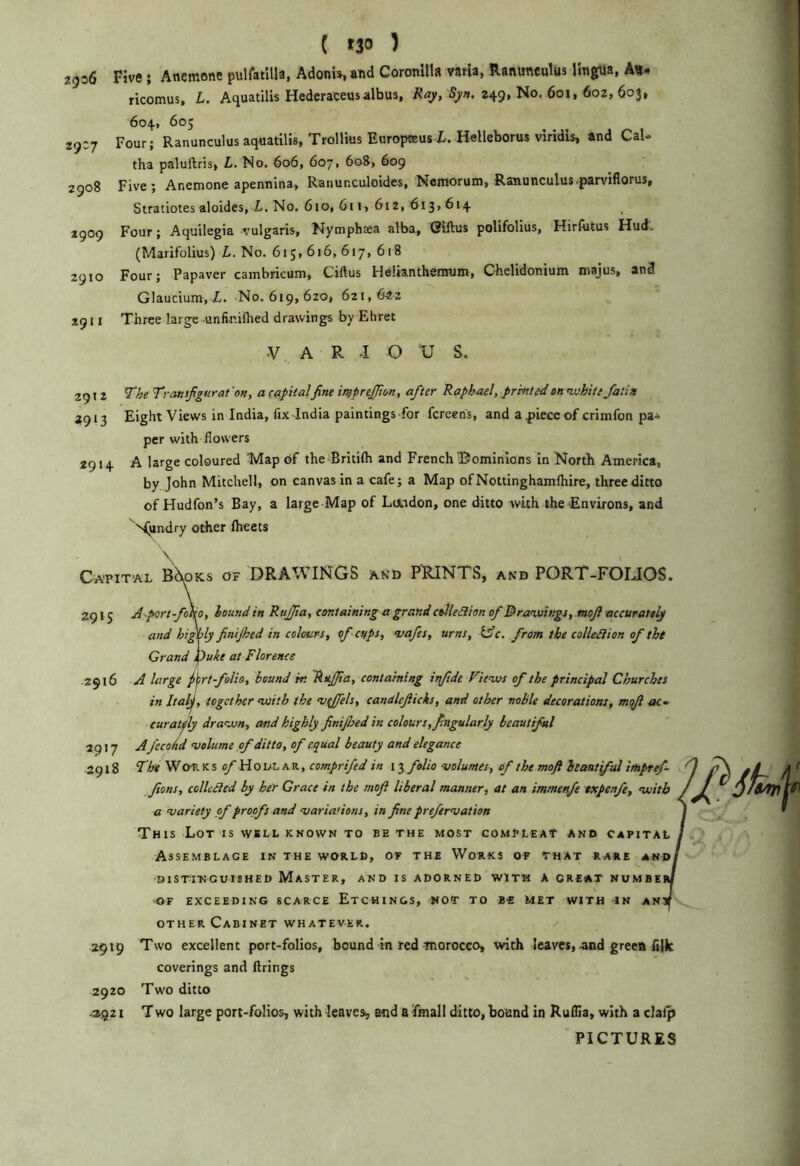 ( 130 )
2906 Five; Anemone pulſatilla, Adonis, and Coronilla varia, Ranunculus lingua, Au-
ricomus, L. Aquatilis Hederaceus albus, Ray, Syn. 249, No. 601, 602, 603,
604, 605
2907 Four; Ranunculus aquatilis, Trollius Europæus L. Helleborus viridis, and Cal-
tha paluſtris, L. No. 606, 607, 608, 609
2908 Five; Anemone apennina, Ranunculoides, Nemorum, Ranunculus parviflorus,
Stratiotes aloides, L. No. 610, 611, 612, 613, 614
2909 Four; Aquilegia vulgaris, Nymphæa alba, Ciſtus polifolius, Hirſutus Hud.
(Marifolius) L. No. 615, 616, 617, 618
2910 Four; Papaver cambricum, Ciſtus Helianthemum, Chelidonium majus, and
Glaucium, L. No. 619, 620, 621, 622
2911 Three large unfiniſhed drawings by Ehret
VARIOUS.
2912 The Transfigurat'on, a capital fine impreſſion, after Raphael, printed on white ſatin
2913 Eight Views in India, ſix India paintings for ſcreens, and a piece of crimſon pa-
per with flowers
2914 A large coloured Map of the Britiſh and French Dominions in North America,
by John Mitchell, on canvas in a caſe; a Map of Nottinghamſhire, three ditto
of Hudſon's Bay, a large Map of London, one ditto with the Environs, and
ſundry other ſheets
CAPITAL BOOKS OF DRAWINGS AND PRINTS, AND PORT-FOLIOS.
2915 A port-folio, bound in Ruſſia, containing a grand collection of Drawings, moſt accurately
and highly finiſhed in colours, of cups, vaſes, urns, &c. from the collection of the
Grand Duke at Florence
2916 A large port-folio, bound in Ruſſia, containing inſide Views of the principal Churches
in Italy, together with the veſſels, candleſticks, and other noble decorations, moſt ac-
curately drawn, and highly finiſhed in colours, ſingularly beautiful
2917 A ſecond volume of ditto, of equal beauty and elegance
2918 The WORKS of HOLLAR, compriſed in 13 folio volumes, of the moſt beautiful impreſ-
ſions, collected by her Grace in the moſt liberal manner, at an immenſe expenſe, with
a variety of proofs and variations, in fine preſervation
THIS LOT IS WELL KNOWN TO BE THE MOST COMPLEAT AND CAPITAL
ASSEMBLAGE IN THE WORLD, OF THE WORKS OF THAT RARE AND
DISTINGUISHED MASTER, AND IS ADORNED WITH A GREAT NUMBER
OF EXCEEDING SCARCE ETCHINGS, NOT TO BE MET WITH IN ANY
OTHER CABINET WHATEVER.
2919 Two excellent port-folios, bound in red morocco, with leaves, and green ſilk
coverings and ſtrings
2920 Two ditto
2921 Two large port-folios, with leaves, and a ſmall ditto, bound in Ruſſia, with a claſp
PICTURES